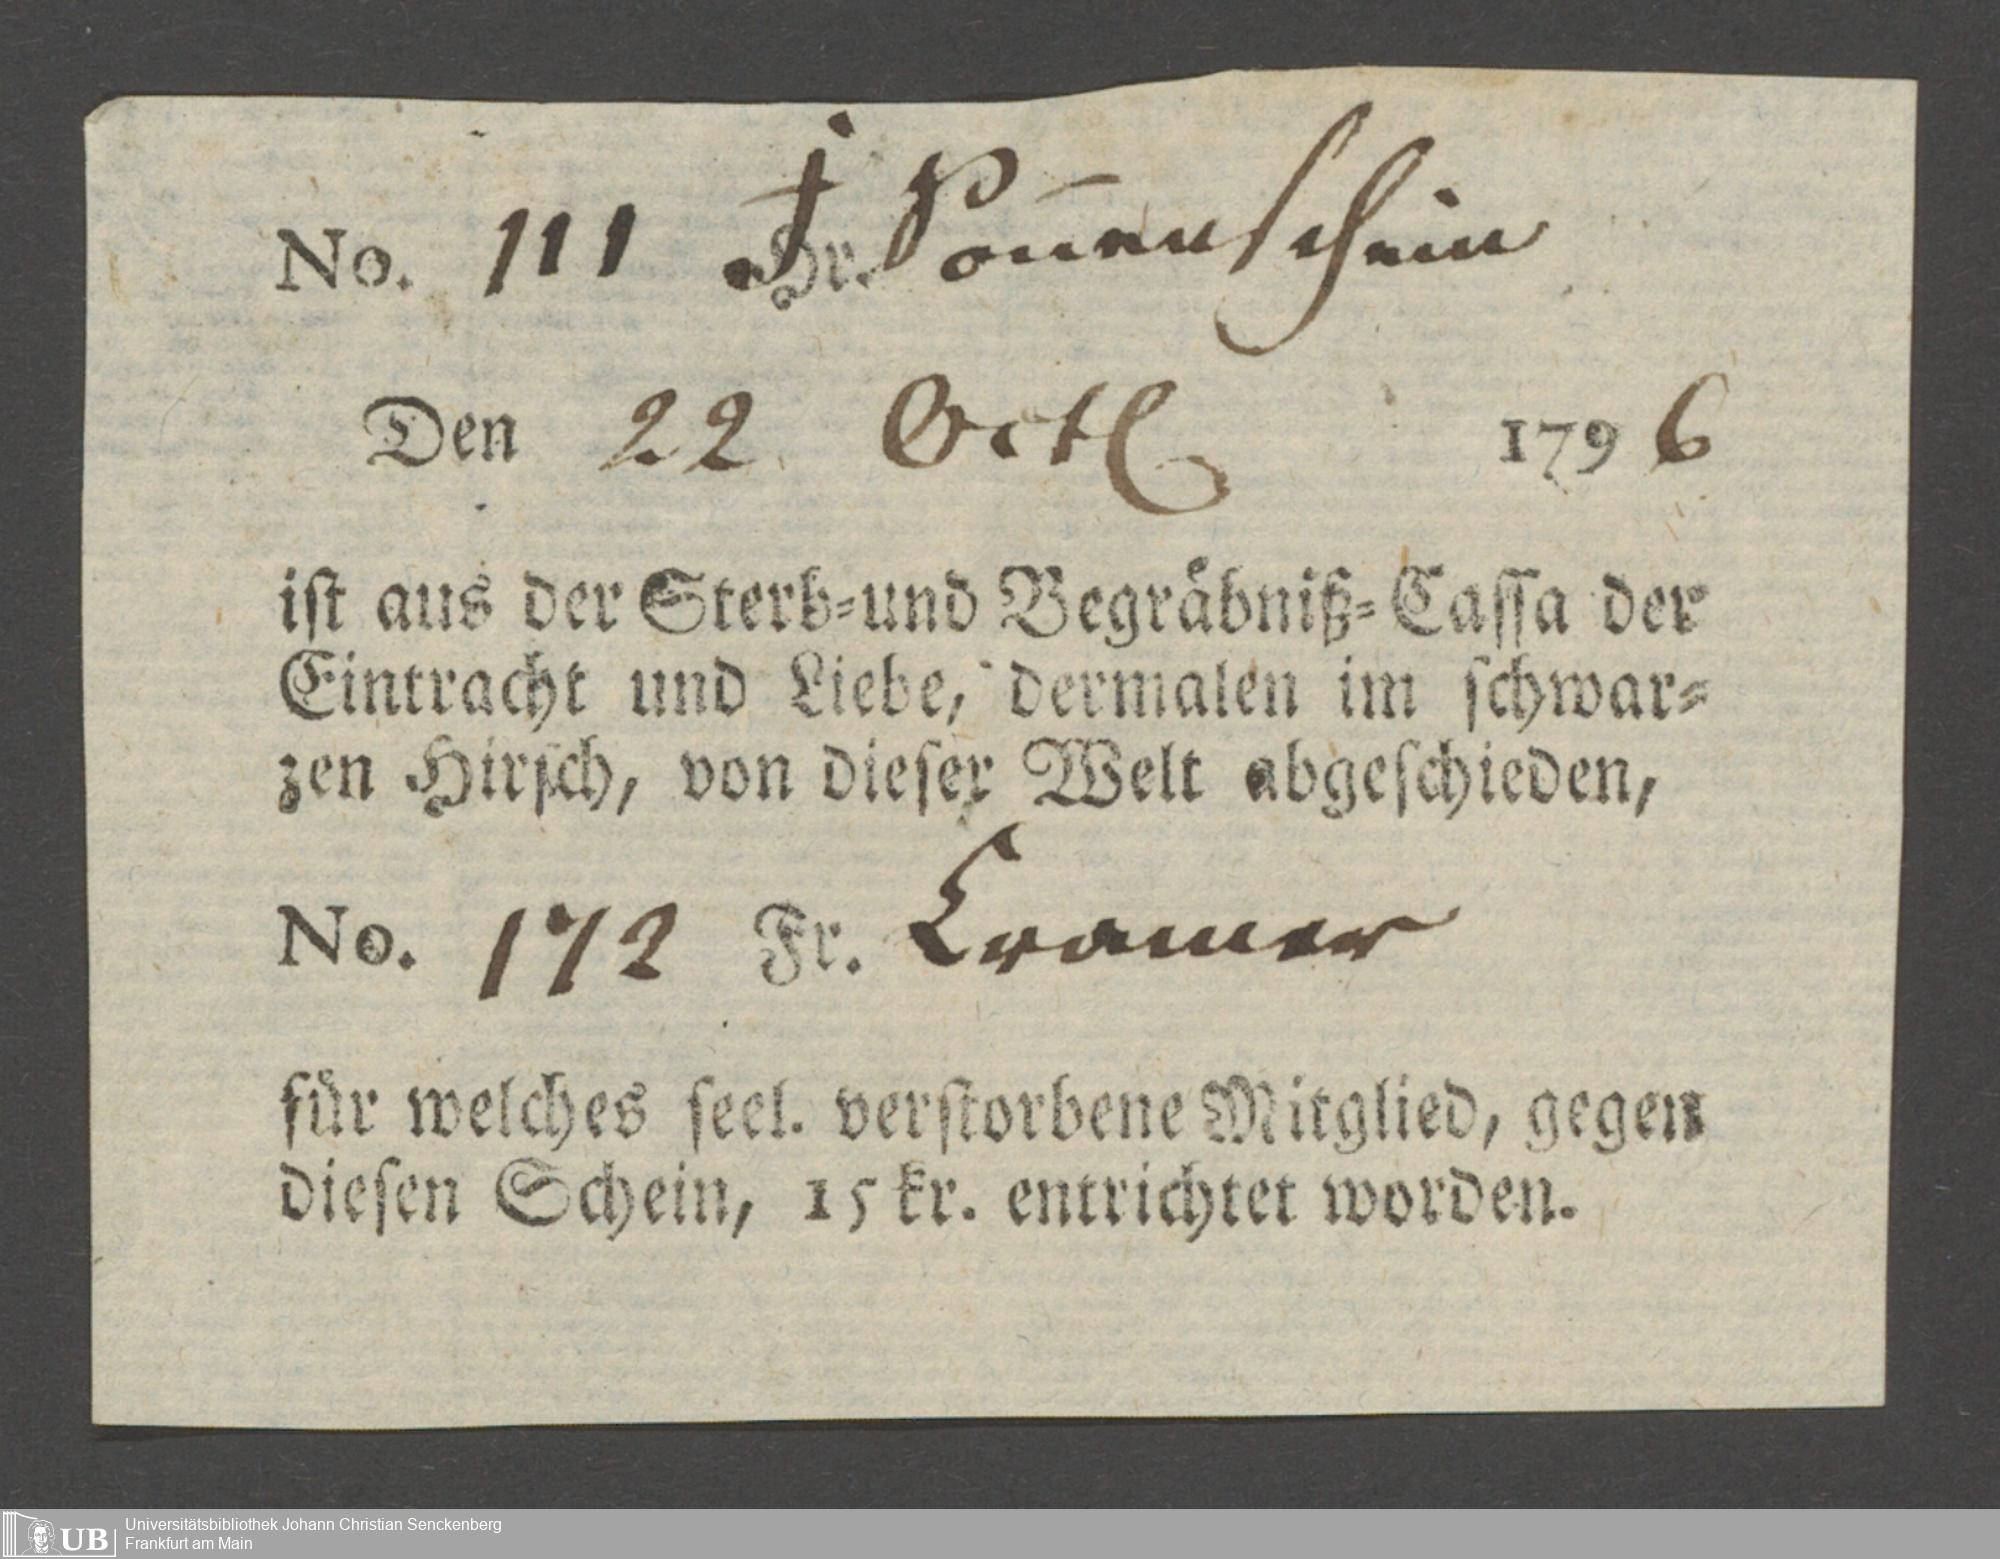 No. 111 Fr. Sonnenschein
Den 22 Octb 1796
iſt aus der Sterb-und Begräbniß-Caſſa der
Eintracht und Liebe, dermalen im ſchwar-
zen Hirſch, von dieſer Welt abgeſchieden,
No. 172 Fr. Cramer
für welches ſeel. verſtorbene Mitglied, gegen
dieſen Schein, 15 kr. entrichtet worden.
UB Universitätsbibliothek Johann Christian Senckenberg
Frankfurt am Main